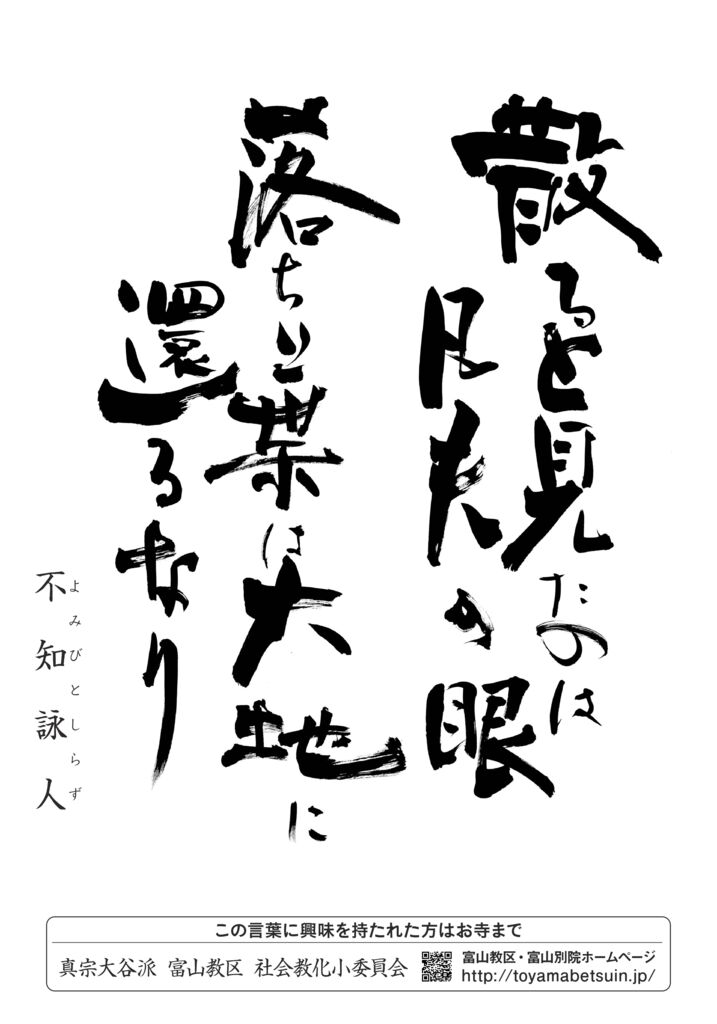 散ると見たのは
凡夫の眼
落ち葉は大地に
還るなり
不知詠人
よみびとしらず
この言葉に興味を持たれた方はお寺まで
真宗大谷派 富山教区 社会教化小委員会
富山教区・富山別院ホームページ
http://toyamabetsuin.jp/